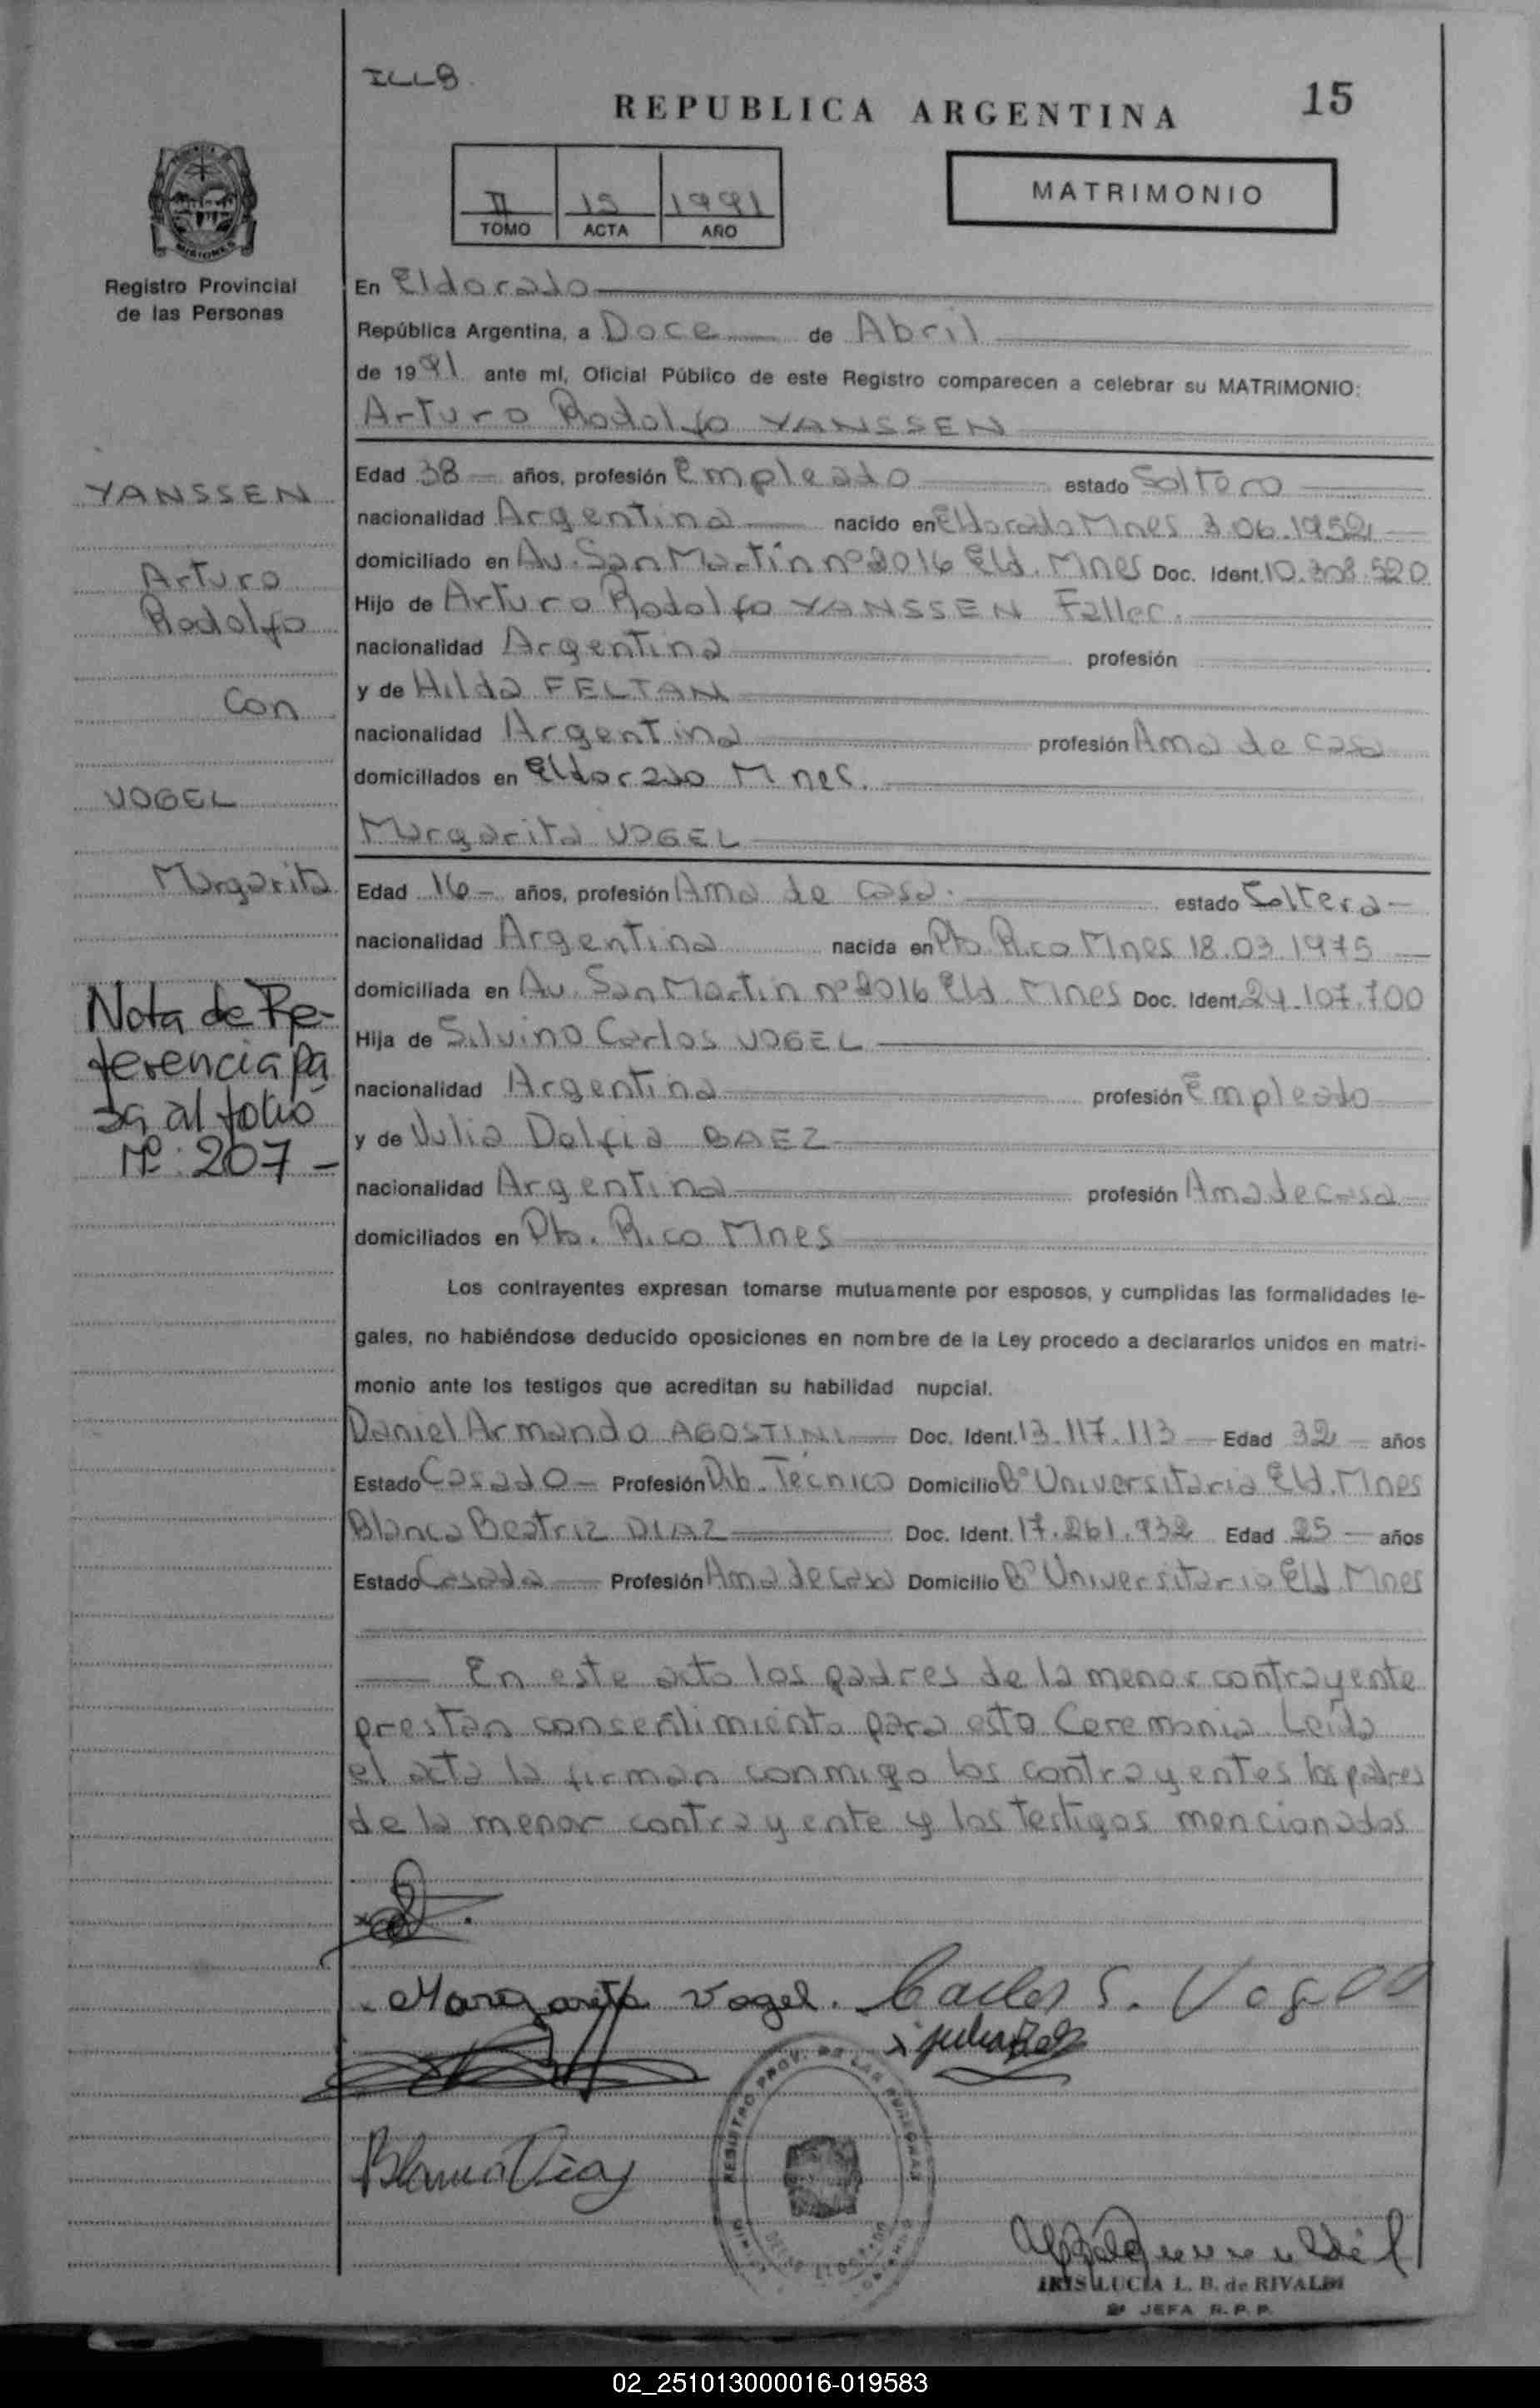 ILLB
REPUBLICA ARGENTINA
15
II 15 1991
TOMO ACTA AÑO
MATRIMONIO
MISIONES
Registro Provincial
de las Personas
En Eldorado
República Argentina, a Doce de Abril
de 1991 ante mí, Oficial Público de este Registro comparecen a celebrar su MATRIMONIO:
Arturo Rodolfo YANSSEN
YANSSEN
Arturo
Rodolfo
Con
VOGEL
Margarita
Nota de Re-
ferencia pa
sa al folio
Nº: 207 -
Edad 38 años, profesión Empleado estado Soltero
nacionalidad Argentina nacido en Eldorado Mnes 3.06.1952
domiciliado en Av. San Martín nº 2016 Eld. Mnes Doc. Ident. 10.308.520
Hijo de Arturo Rodolfo YANSSEN Fallec.
nacionalidad Argentina profesión
y de Hilda FELTAN
nacionalidad Argentina profesión Ama de casa
domiciliados en Eldorado Mnes.
Margarita VOGEL
Edad 16 años, profesión Ama de casa. estado Soltera
nacionalidad Argentina nacida en Pto. Rico Mnes 18.03.1975
domiciliada en Av. San Martin nº 2016 Eld. Mnes Doc. Ident. 24.107.700
Hija de Silvino Carlos VOGEL
nacionalidad Argentina profesión Empleado
y de Julia Dalfia BAEZ
nacionalidad Argentina profesión Ama de casa
domiciliados en Pto. Rico Mnes
Los contrayentes expresan tomarse mutuamente por esposos, y cumplidas las formalidades le-
gales, no habiéndose deducido oposiciones en nombre de la Ley procedo a declararlos unidos en matri-
monio ante los testigos que acreditan su habilidad nupcial.
Daniel Armando AGOSTINI Doc. Ident. 13.117.113 Edad 32 años
Estado Casado Profesión Dib. Técnico Domicilio Bº Universitario Eld. Mnes
Blanca Beatriz DIAZ Doc. Ident. 17.261.932 Edad 25 años
Estado Casada Profesión Ama de casa Domicilio Bº Universitario Eld. Mnes
En este acto los padres de la menor contrayente
prestan consentimiento para esta Ceremonia Leída
el acta la firman conmigo los contrayentes los padres
de la menor contrayente y los testigos mencionados
Margarita Vogel. Carlos S. Vogel
x julia Baez
Blanca Diaz
REGISTRO PROV. DE LAS PERSONAS
IRIS LUCIA L. B. de RIVALDI
JEFA R.P.P.
02_251013000016-019583